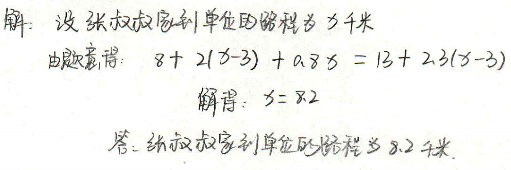 解：设张叔叔家到单位的路程为x千米
由题意得：8+2(x-3)+0.8x=13+2.3(x-3)
解得：x=8.2
答：张叔叔家到单位的路程为8.2千米.